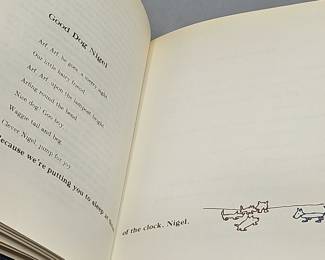 Good Dog Nigel
Arf, Arf, he goes, a merry sight
Our little hairy friend
Arf, Arf, upon the lampost bright
Arfing round the bend.
Nice dog! Goo boy,
Waggie tail and beg,
Clever Nigel, jump for joy
Because we're putting you to sleep at
of the clock, Nigel.